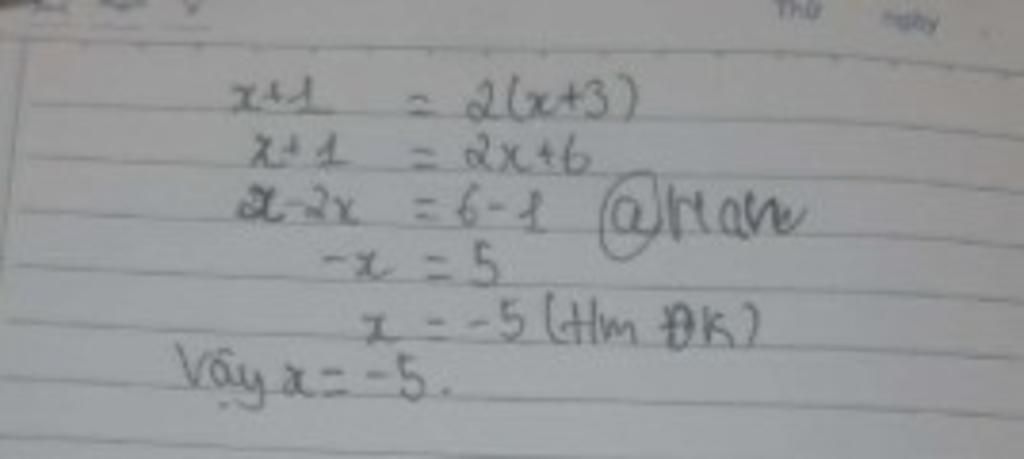 Thứ ngày
x+1 = 2(x+3)
x+1 = 2x+6
x-2x = 6-1
-x = 5
x = -5 (tm ĐK)
Vậy x = -5.